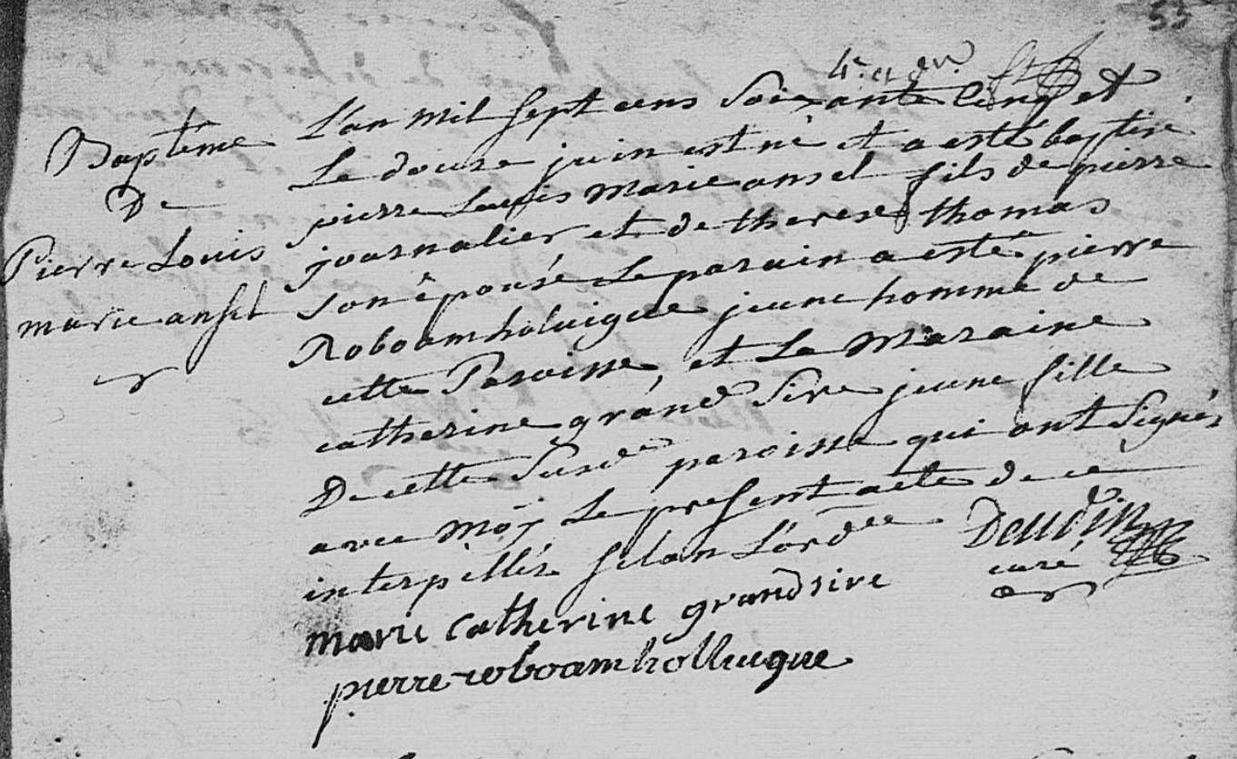 53
Baptême
De
Pierre Louis
marie ansel
L'an mil sept cens soixante cinq et
Le douze juin est né et a esté baptisé
pierre Louis marie ansel fils de pierre
journalier et de therese thomas
son épouse Le parain a esté pierre
Roboam holuigue jeune homme de
cette Paroisse, et La Maraine
catherine grand Sire jeune fille
De cette Susde paroisse qui ont Signés
avec Moy Le present acte de ce
interpellés selon L'ordce
Deudin
curé
marie catherine grandsire
pierre roboam holluigue